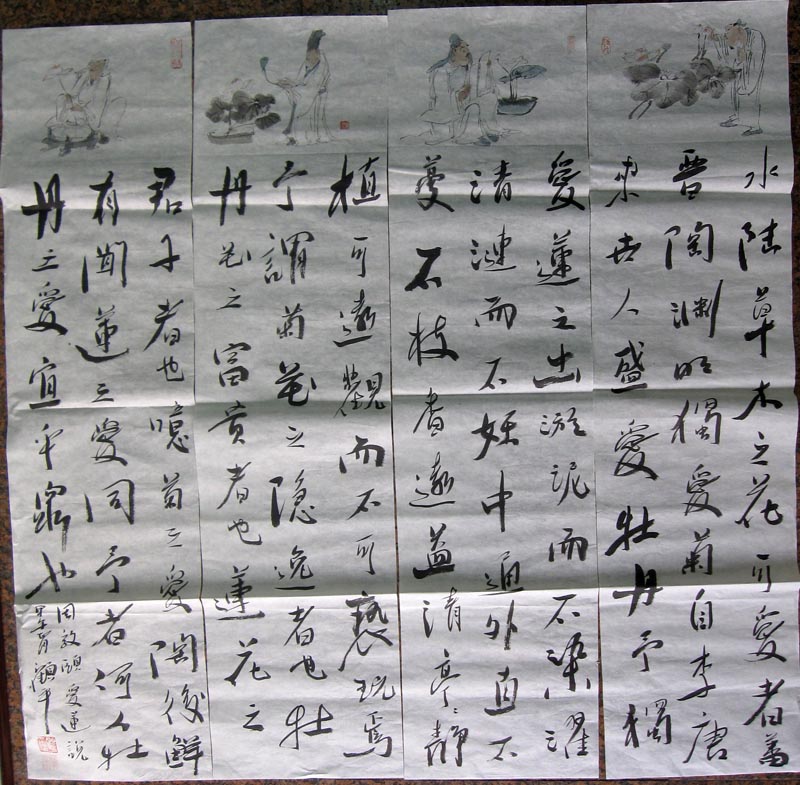 水陸草木之花可愛者蕃
晋陶渊明獨愛菊自李唐
来世人盛愛牡丹予獨
愛蓮之出淤泥而不染濯
清漣而不妖中通外直不
蔓不枝香遠益清亭〻静
植可遠觀而不可褻玩焉
予謂菊花之隐逸者也牡
丹花之富貴者也蓮花之
君子者也噫菊之愛陶後鮮
有聞蓮之愛同予者何人牡
丹之愛宜乎衆也
周敦頤愛蓮説